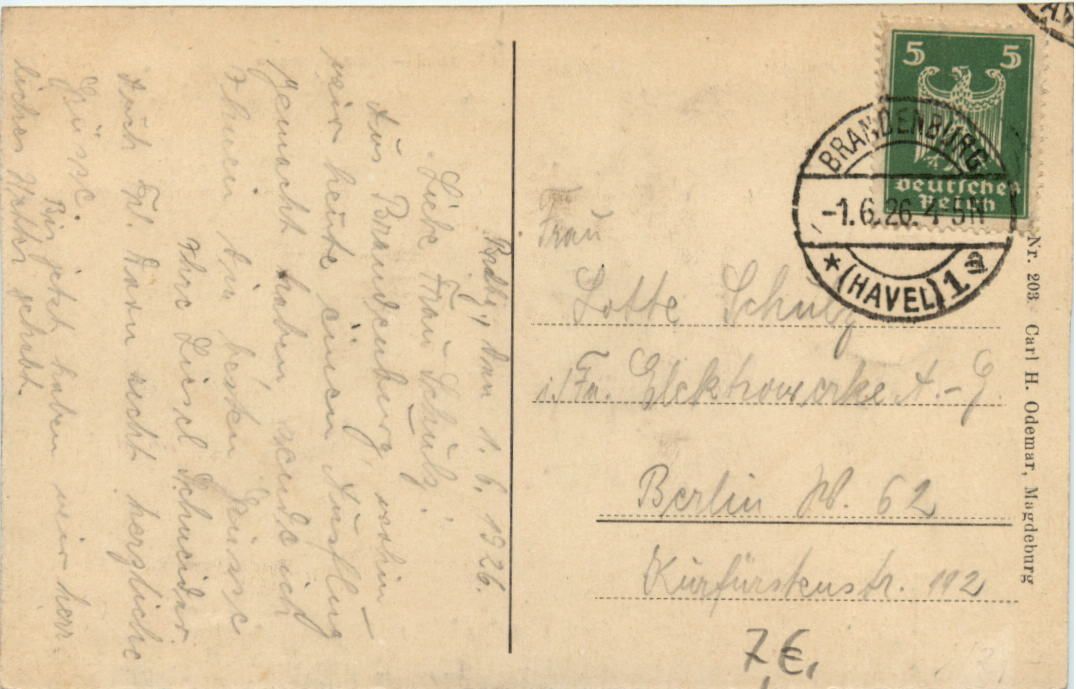 den 1. 6. 1926.
Liebe Frau Schulz!
Aus Brandenburg, wohin
wir heute einen Ausflug
gemacht haben sende ich
Ihnen die besten Grüsse
Ihre Liesel Schneider.
Auch Frl. herzliche
Grüsse
Bis jetzt haben wir herr-
liches Wetter gehabt.
5 5
Deutsches
Reich
BRANDENBURG
-1.6.26. 4-5N
* (HAVEL) 1
Frau
Lotte Schulz
i/Fa. Elektrowerke A.-G.
Berlin W. 62
Kurfürstenstr. 112
7,€,
Nr. 203 Carl H. Odemar, Magdeburg